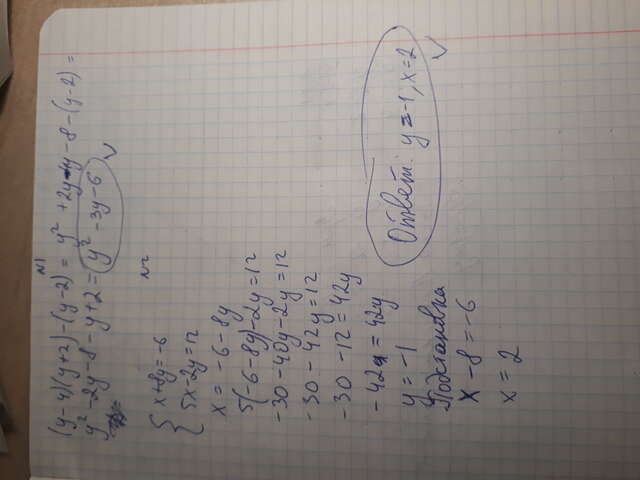 №1
(y-4)(y+2)-(y-2) = y² +2y-4y-8-(y-2) =
y² -2y-8-y+2 = y² -3y-6
№2
{ x+8y=-6
5x-2y=12
x = -6-8y
5(-6-8y)-2y=12
-30-40y-2y=12
-30-42y=12
-30-12=42y
-42=42y
y=-1
Ответ: y=-1, x=2
Подстановка
x-8=-6
x=2